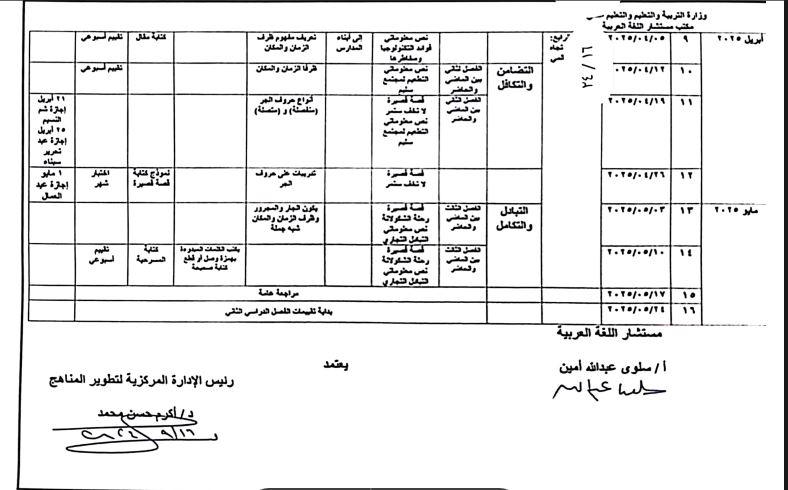 وزارة التربية والتعليم والتعليم
مكتب مستشار اللغة العربية
أبريل ٢٠٢٥
٩
٢٠٢٥/٠٤/٠٥
نص معلوماتي
فوائد التكنولوجيا
ومخاطرها
إلى أبناء
المدارس
تعريف مفهوم ظرف
الزمان والمكان
كتابة مقال
تقييم أسبوعي
١٠
٢٠٢٥/٠٤/١٢
التضامن
والتكافل
الفصل الثاني
بين الماضي
والحاضر
نص معلوماتي
التطعيم لمجتمع
سليم
ظرفا الزمان والمكان
تقييم أسبوعي
١١
٢٠٢٥/٠٤/١٩
الفصل الثاني
بين الماضي
والحاضر
قصة قصيرة
لا تخف ستمر
نص معلوماتي
التطعيم لمجتمع
سليم
أنواع حروف الجر
(منفصلة) و (متصلة)
٢١ أبريل
إجازة شم
النسيم
٢٥ أبريل
إجازة عيد
تحرير
سيناء
١٢
٢٠٢٥/٠٤/٢٦
قصة قصيرة
لا تخف ستمر
تدريبات على حروف
الجر
نموذج كتابة
قصة قصيرة
اختبار
شهر
١ مايو
إجازة عيد
العمال
مايو ٢٠٢٥
١٣
٢٠٢٥/٠٥/٠٣
التبادل
والتكامل
الفصل الثالث
بين الماضي
والحاضر
قصة قصيرة
رحلة الشكولاتة
نص معلوماتي
التبادل التجاري
يكون الجار والمجرور
وظرف الزمان والمكان
شبه جملة
١٤
٢٠٢٥/٠٥/١٠
الفصل الثالث
بين الماضي
والحاضر
قصة قصيرة
رحلة الشكولاتة
نص معلوماتي
التبادل التجاري
يكتب الكلمات المبدوءة
بهمزة وصل أو قطع
كتابة صحيحة
كتابة
المسرحية
تقييم
أسبوعي
١٥
٢٠٢٥/٠٥/١٧
مراجعة عامة
١٦
٢٠٢٥/٠٥/٢٤
بداية تقييمات الفصل الدراسي الثاني
مستشار اللغة العربية
أ/ سلوى عبدالله أمين
يعتمد
رئيس الإدارة المركزية لتطوير المناهج
د/ أكرم حسن محمد